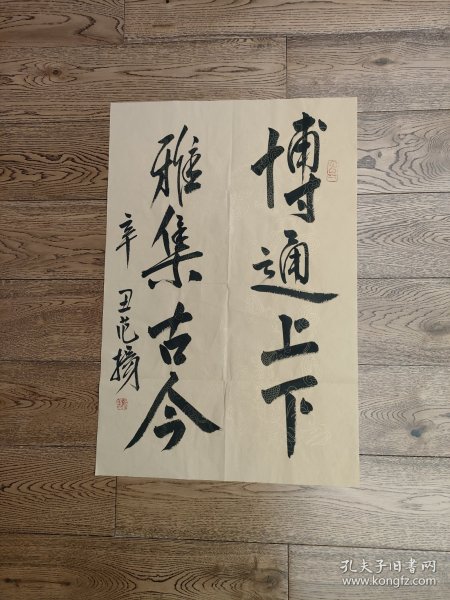 博通上下
雅集古今
辛丑范扬
孔夫子旧书网
www.kongfz.com